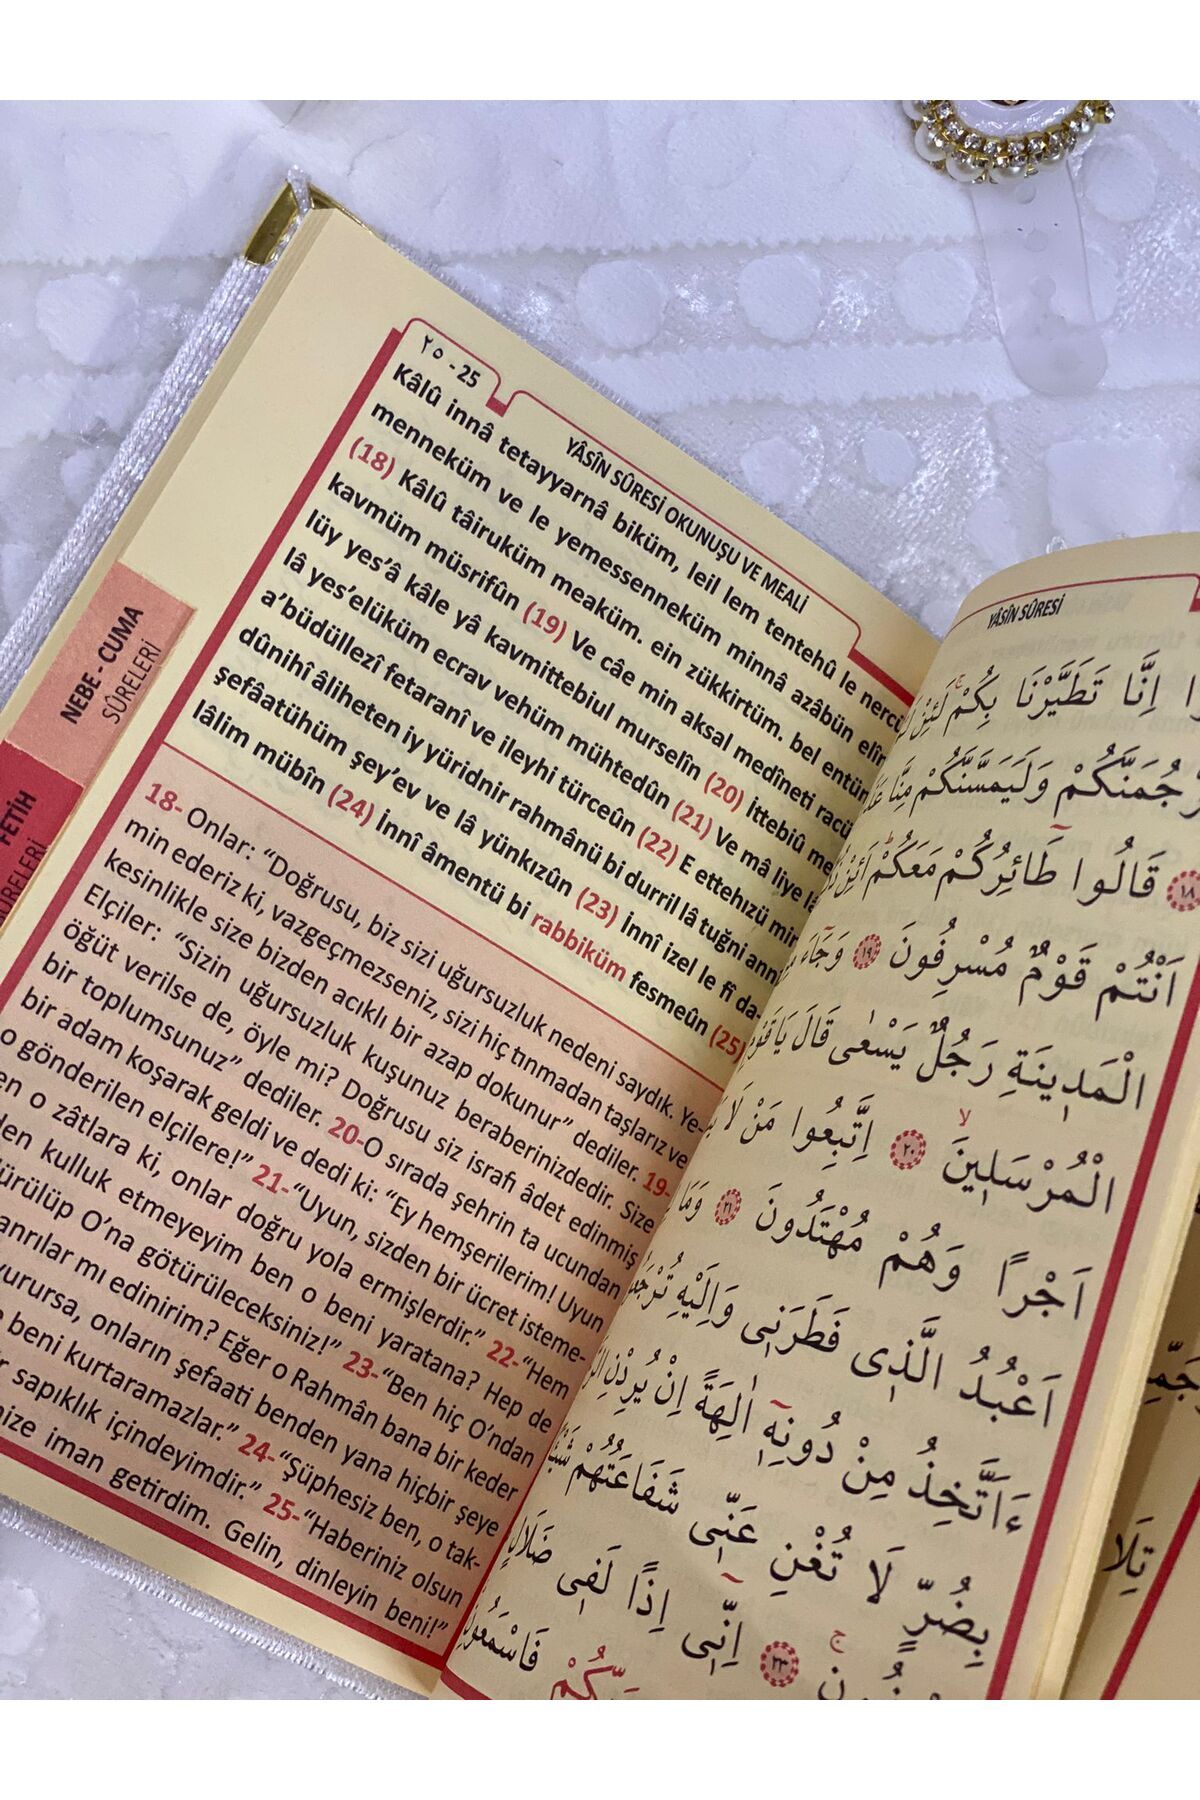 ٢٥ - 25
YÂSÎN SÛRESİ OKUNUŞU VE MEALİ
Kâlû innâ tetayyarnâ biküm, leil lem tentehû le nercü
menneküm ve le yemessenneküm minnâ azâbün elîm
(18) Kâlû tâiruküm meaküm. ein zükkirtüm. bel entüm
kavmüm müsrifûn (19) Ve câe min aksal medîneti racü
lüy yes’â kâle yâ kavmittebiul murselîn (20) İttebiû me
lâ yes’elüküm ecrav vehüm mühtedûn (21) Ve mâ liye lâ
a’büdüllezî fetaranî ve ileyhi türceûn (22) E ettehızü min
dûnihî âliheten iy yüridnir rahmânü bi durril lâ tuğni annî
şefâatühüm şey’ev ve lâ yünkızûn (23) İnnî izel le fî da-
lâlim mübîn (24) İnnî âmentü bi rabbiküm fesmeûn (25)
18- Onlar: “Doğrusu, biz sizi uğursuzluk nedeni saydık. Ye-
min ederiz ki, vazgeçmezseniz, sizi hiç tınmadan taşlarız ve
kesinlikle size bizden acıklı bir azap dokunur” dediler. 19-
Elçiler: “Sizin uğursuzluk kuşunuz beraberinizdedir. Size
öğüt verilse de, öyle mi? Doğrusu siz israfı âdet edinmiş
bir toplumsunuz” dediler. 20-O sırada şehrin ta ucundan
bir adam koşarak geldi ve dedi ki: “Ey hemşerilerim! Uyun
o gönderilen elçilere!” 21-“Uyun, sizden bir ücret isteme-
en o zâtlara ki, onlar doğru yola ermişlerdir.” 22-“Hem
den kulluk etmeyeyim ben o beni yaratana? Hep de
ürülüp O’na götürüleceksiniz!” 23-“Ben hiç O’ndan
anrılar mı edinirim? Eğer o Rahmân bana bir keder
yurursa, onların şefaati benden yana hiçbir şeye
beni kurtaramazlar.” 24-“Şüphesiz ben, o tak-
sapıklık içindeyimdir.” 25-“Haberiniz olsun
ize iman getirdim. Gelin, dinleyin beni!”
NEBE - CUMA
SÛRELERİ
FETİH
SÛRELERİ
YÂSÎN SÛRESİ
اِنَّا تَطَيَّرْنَا بِكُمْۚ لَئِنْ
جُمَنَّكُمْ وَلَيَمَسَّنَّكُمْ مِنَّا
١٨ قَالُوا طَٓائِرُكُمْ مَعَكُمْۜ اَئِنْ
اَنْتُمْ قَوْمٌ مُسْرِفُونَ ١٩ وَجَٓاءَ
الْمَد۪ينَةِ رَجُلٌ يَسْعٰى قَالَ يَا قَوْمِ
الْمُرْسَل۪ينَۙ ٢٠ اِتَّبِعُوا مَنْ لَا
اَجْرًا وَهُمْ مُهْتَدُونَ ٢١ وَمَا
اَعْبُدُ الَّذ۪ى فَطَرَن۪ى وَاِلَيْهِ
ءَاَتَّخِذُ مِنْ دُونِه۪ٓ اٰلِهَةً اِنْ يُرِدْنِ
بِضُرٍّ لَا تُغْنِ عَنّ۪ى شَفَاعَتُهُمْ
٢٣ اِنّ۪ٓى اِذًا لَف۪ى ضَلَالٍ
فَاسْمَعُونِ